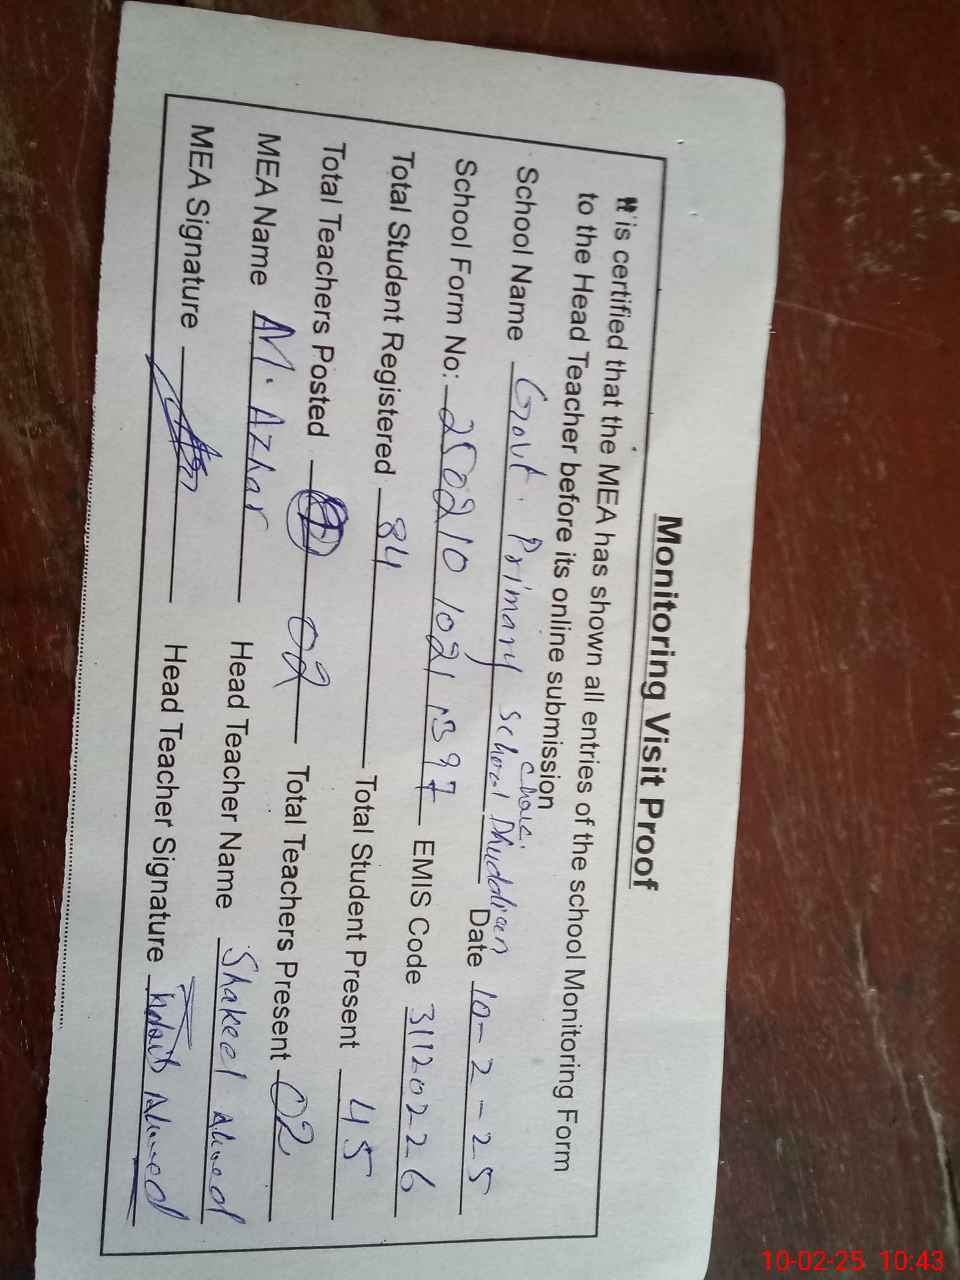 Monitoring Visit Proof
It is certified that the MEA has shown all entries of the school Monitoring Form
to the Head Teacher before its online submission
School Name Govt. Primary School Dhuddian Date 10-2-25
School Form No: 250210 1021 1397 EMIS Code 31120226
Total Student Registered 84 Total Student Present 45
Total Teachers Posted 02 Total Teachers Present 02
MEA Name M. Azhar Head Teacher Name Shakeel Ahmed
MEA Signature Head Teacher Signature Ahmed
10-02-25 10:43